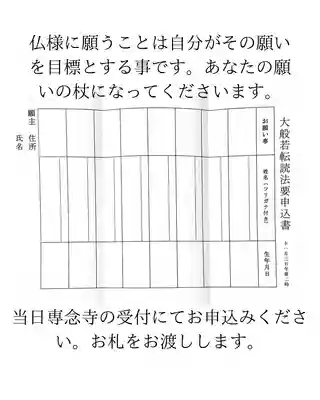 仏様に願うことは自分がその願い
を目標とする事です。あなたの願
いの杖になってくださいます。
大般若転読法要申込書
お願い事
姓名(フリガナ付き)
生年月日
願主 住所
氏名
当日専念寺の受付にてお申込みくださ
い。お札をお渡しします。